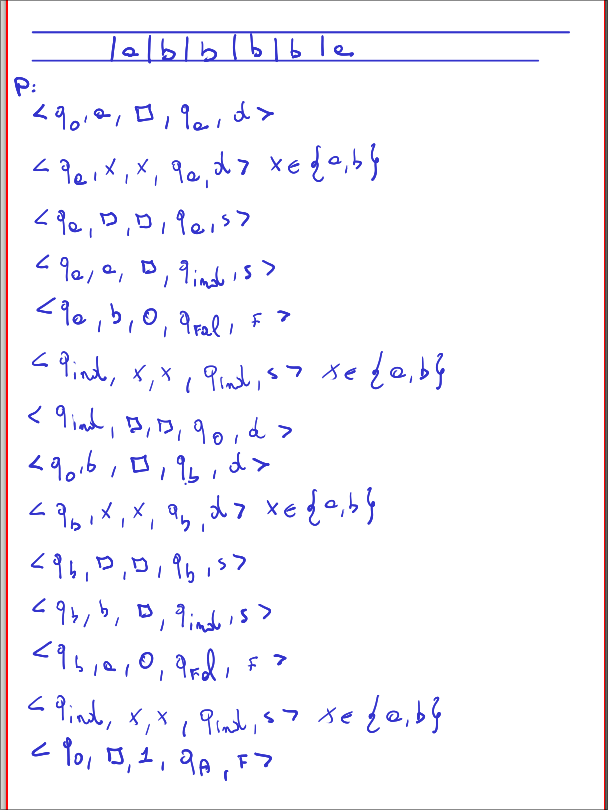 |a|b|b|b|b|a
P:
<q₀, a, □, qₐ, d>
<qₐ, x, x, qₐ, d> x∈{a,b}
<qₐ, □, □, qₐ, s>
<qₐ, a, □, q_ind, s>
<qₐ, b, 0, q_Fal, F>
<q_ind, x, x, q_ind, s> x∈{a,b}
<q_ind, □, □, q₀, d>
<q₀, b, □, q_b, d>
<q_b, x, x, q_b, d> x∈{a,b}
<q_b, □, □, q_b, s>
<q_b, b, □, q_ind, s>
<q_b, a, 0, q_Fal, F>
<q_ind, x, x, q_ind, s> x∈{a,b}
<q₀, □, 1, q_A, F>